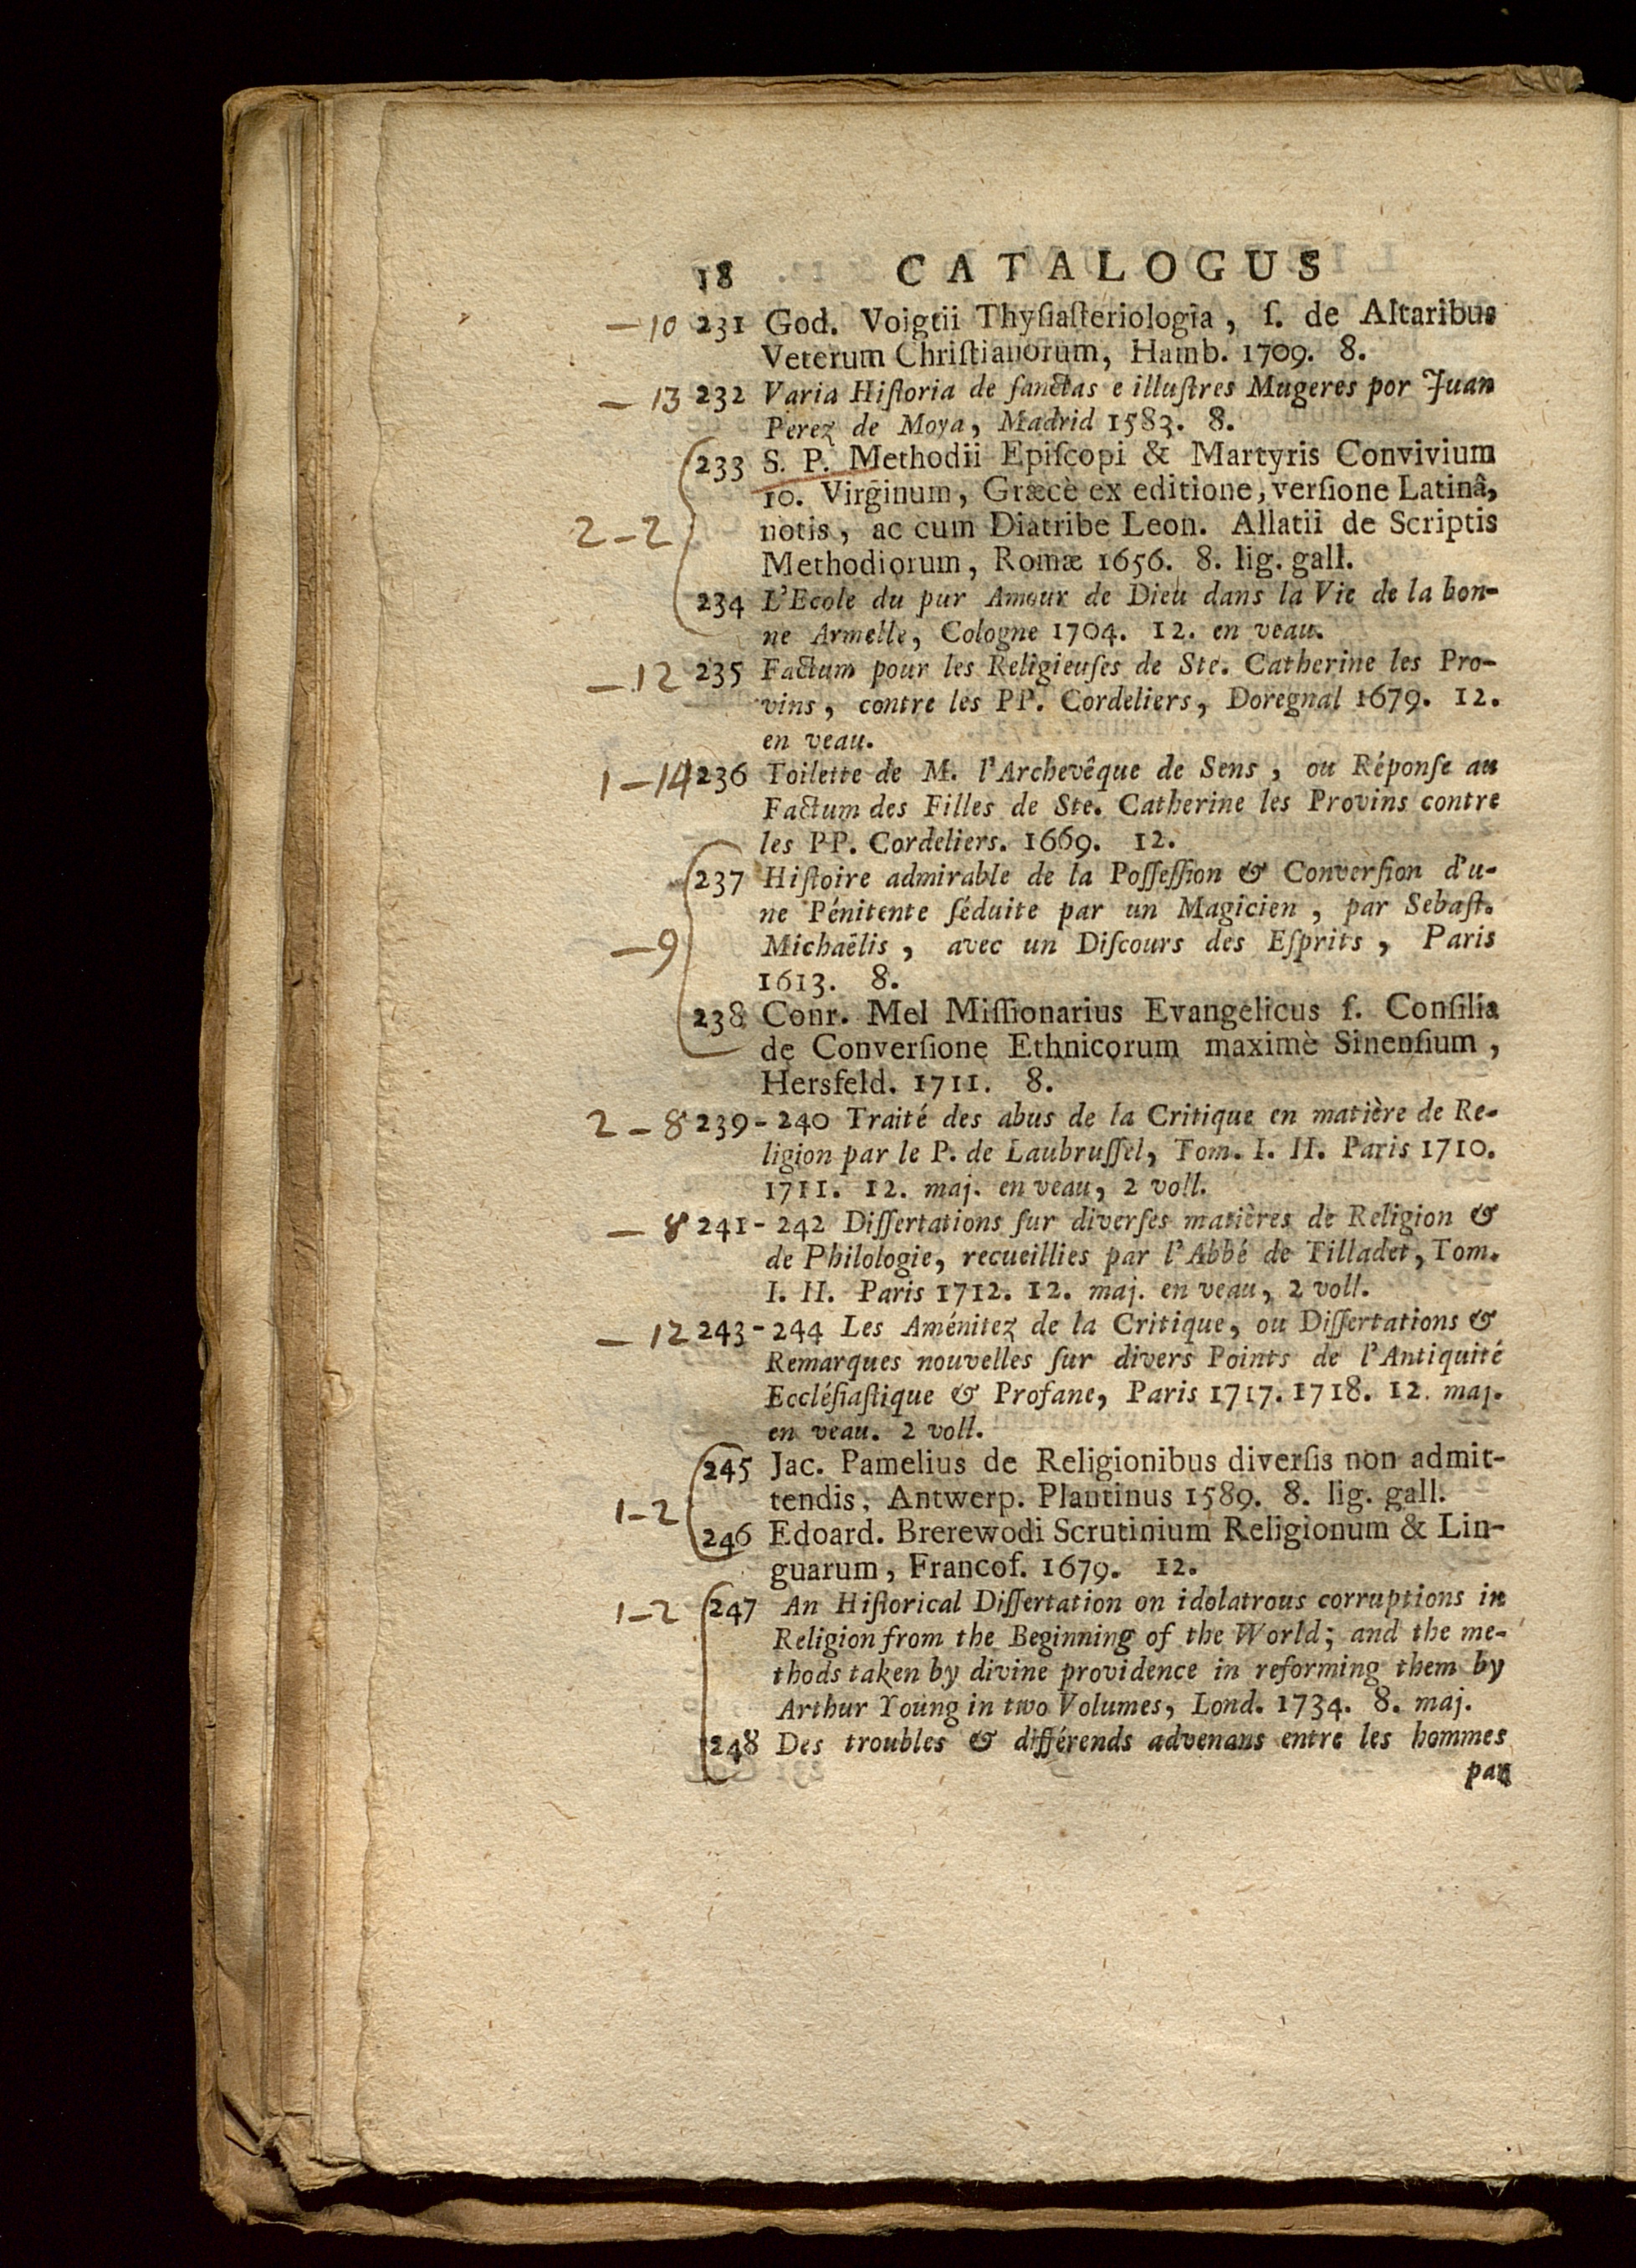 18 CATALOGUS
—10 231 God. Voigtii Thyſiaſteriologia, ſ. de Altaribus
Veterum Chriſtianorum, Hamb. 1709. 8.
—13 232 Varia Hiſtoria de ſanctas e illuſtres Mugeres por Juan
Perez de Moya, Madrid 1583. 8.
233 S. P. Methodii Epiſcopi & Martyris Convivium
10. Virginum, Græcè ex editione, verſione Latinâ,
2-2 notis, ac cum Diatribe Leon. Allatii de Scriptis
Methodiorum, Romæ 1656. 8. lig. gall.
234 L'Ecole du pur Amour de Dieu dans la Vie de la bon-
ne Armelle, Cologne 1704. 12. en veau.
—12 235 Factum pour les Religieuſes de Ste. Catherine les Pro-
vins, contre les PP. Cordeliers, Doregnal 1679. 12.
en veau.
1—14 236 Toilette de M. l'Archevêque de Sens, ou Réponſe au
Factum des Filles de Ste. Catherine les Provins contre
les PP. Cordeliers. 1669. 12.
237 Hiſtoire admirable de la Poſſeſſion & Converſion d'u-
ne Pénitente ſéduite par un Magicien, par Sebaſt.
—9 Michaëlis, avec un Diſcours des Eſprits, Paris
1613. 8.
238 Conr. Mel Miſſionarius Evangelicus ſ. Conſilia
de Converſione Ethnicorum maximè Sinenſium,
Hersfeld. 1711. 8.
2—8 239-240 Traité des abus de la Critique en matière de Re-
ligion par le P. de Laubruſſel, Tom. I. II. Paris 1710.
1711. 12. maj. en veau, 2 voll.
—8 241-242 Diſſertations ſur diverſes matières de Religion &
de Philologie, recueillies par l'Abbé de Tilladet, Tom.
I. II. Paris 1712. 12. maj. en veau, 2 voll.
—12 243-244 Les Aménitez de la Critique, ou Diſſertations &
Remarques nouvelles ſur divers Points de l'Antiquité
Eccléſiaſtique & Profane, Paris 1717. 1718. 12. maj.
en veau. 2 voll.
245 Jac. Pamelius de Religionibus diverſis non admit-
1-2 tendis, Antwerp. Plantinus 1589. 8. lig. gall.
246 Edoard. Brerewodi Scrutinium Religionum & Lin-
guarum, Francof. 1679. 12.
1-2 247 An Hiſtorical Diſſertation on idolatrous corruptions in
Religion from the Beginning of the World; and the me-
thods taken by divine providence in reforming them by
Arthur Young in two Volumes, Lond. 1734. 8. maj.
248 Des troubles & différends advenans entre les hommes
par